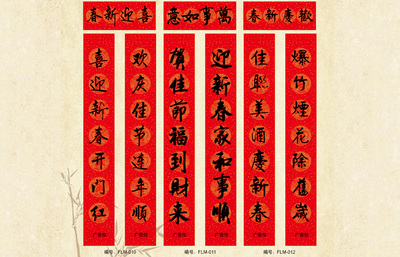 喜迎新春
萬事如意
歡慶新春
喜迎新春开门红
欢庆佳节连年顺
賀佳節福到財来
迎新春家和事順
佳聯美酒慶新春
爆竹煙花除舊歲
编号：FLM-010
编号：FLM-011
编号：FLM-012